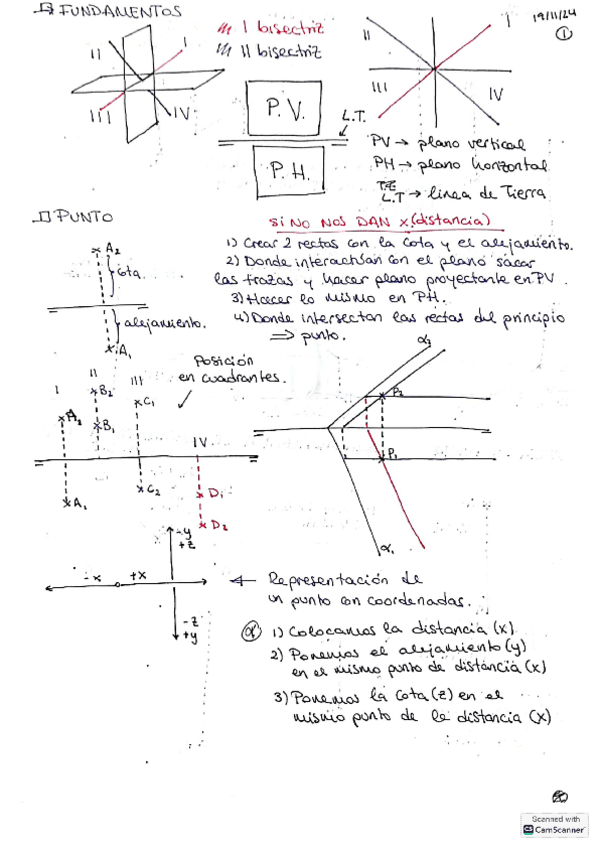 FUNDAMENTOS
19/11/24
1
I bisectriz
II bisectriz
II
I
III
IV
P.V.
L.T.
P.H.
II
I
III
IV
PV → plano vertical
PH → plano horizontal
L.T → linea de Tierra
PUNTO
SI NO NOS DAN x (distancia)
1) Crear 2 rectas con la cota y el alejamiento.
2) Donde interactúan con el plano sacar
las trazas y hacer plano proyectante en PV.
3) Hacer lo mismo en PH.
4) Donde intersectan las rectas del principio
⇒ punto.
A2
cota.
alejamiento.
A1
Posición
en cuadrantes.
I
II
III
IV
A2
B2
B1
C1
A1
C2
D1
D2
α2
P2
P1
α1
-y
+z
-x
+x
-z
+y
Representación de
un punto con coordenadas.
1) Colocamos la distancia (x)
2) Ponemos el alejamiento (y)
en el mismo punto de distancia (x)
3) Ponemos la cota (z) en el
mismo punto de la distancia (x)
Scanned with
CS CamScanner